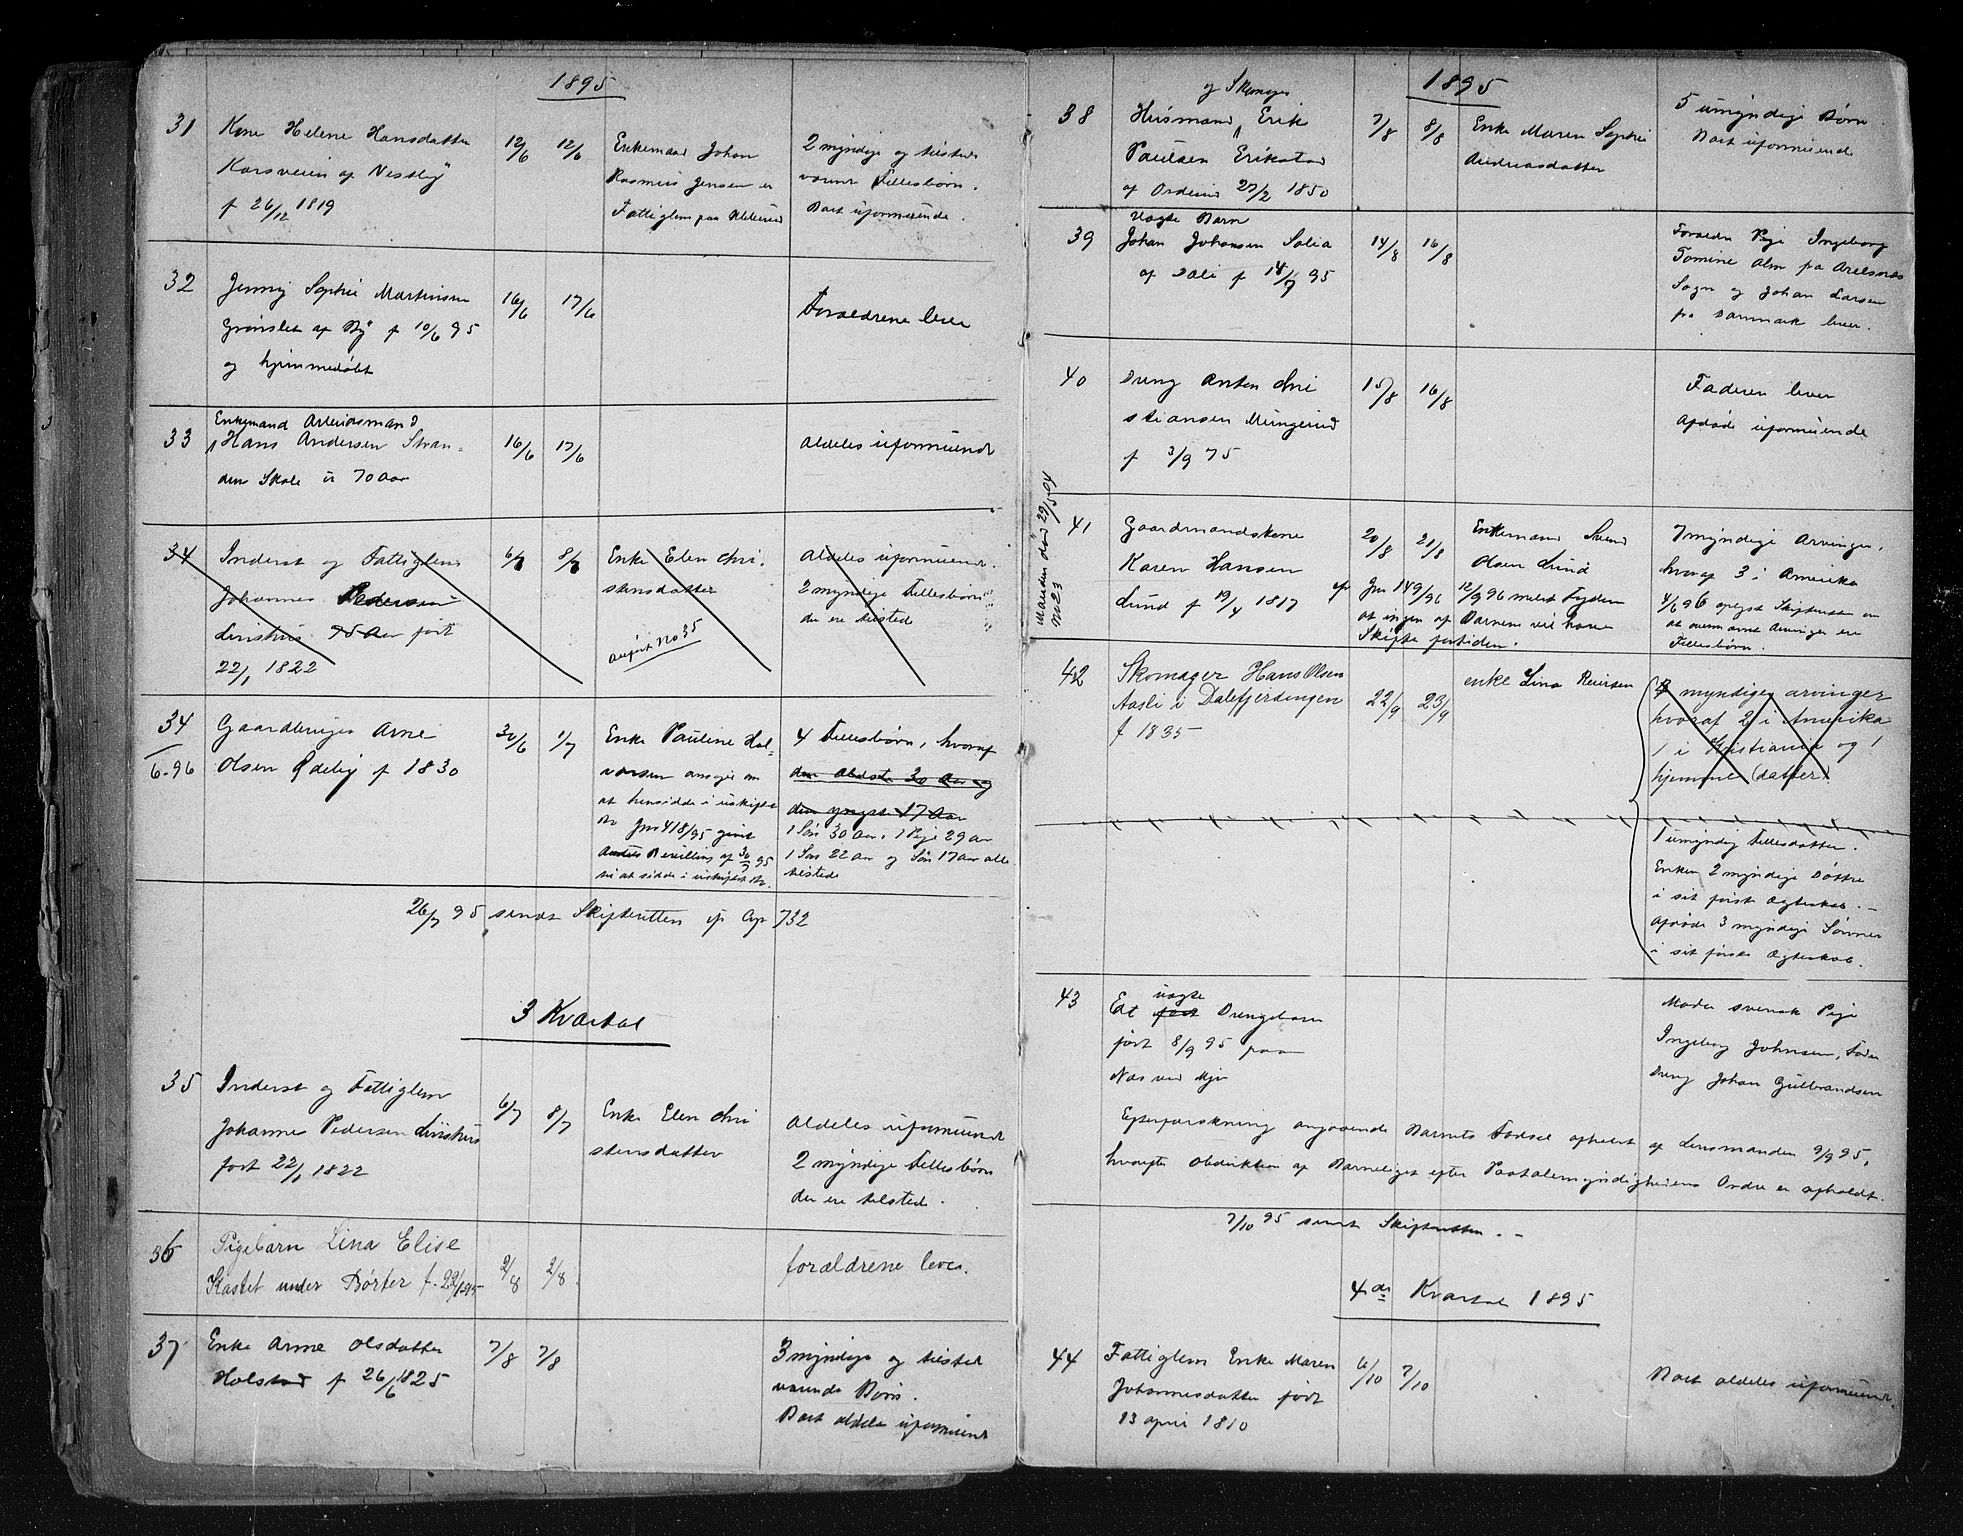 1895
31 Kone Helene Hansdatter 12/6 12/6 Enkemand Johan 2 myndige og tilstede
Korsveien af Nestby Rasmus Jensen er værende Fellesbørn.
f 26/12 1819 Fattiglem paa Boet uformuende.
32 Jenny Sophie Martinsen 16/6 17/6 Forældrene lever
Grønslet af By f 10/6 95
og hjemmedøbt
Enkemand Arbeidsmand
33 Hans Andersen Stran- 16/6 17/6 aldeles uformuende
den Skole 70 aar
34 Inderst og Fattiglem 6/7 8/7 Enke Elen Chri- aldeles uformuende.
Johannes Pedersen stensdatter 2 myndige Fellesbørn
Linshus 75 Aar født der ere tilstede
22/1 1822 anført No 35
34 Gaardbruger Arne 30/6 1/7 Enke Pauline Hal- 4 Fellesbørn, hvoraf
6-96 Olsen Ødeby f 1830 vorsen ansøger om den ældste 30 Aar og
at hensidde i uskiftet den yngste 17 Aar
Bo Jrn 418/95 givet 1 Søn 30 Aar, 1 Pige 29 Aar
Amtets Bevilling af 30/7 95 1 Søn 22 Aar og Søn 17 Aar alle
til at sidde i uskiftet Bo. tilstede
26/7 95 sendt Skifteretten
732
3 Kvartal
35 Inderst og Fattiglem 6/7 8/7 Enke Elen Chri aldeles uformuende
Johannes Pedersen Linshus stensdatter 2 myndige Fellesbørn
født 22/1 1822 der ere tilstede.
36 Pigebarn Lina Elise 2/8 2/8 forældrene lever.
Kastet under Børter f. 22/1 95
37 Enke Anne Olsdatter 7/8 7/8 3 myndige og tilstede
Holstad f 26/6 1825 værende Børn.
Boet aldeles uformuende
1895
og Skomager
38 Husmand Erik 7/8 8/8 Enke Maren Sophie 5 umyndige Børn
Paulsen Erikstad Andreasdatter Boet uformuende
af 27/2 1850
uægte Barn
39 Johan Johansen Solia 14/8 16/8 Forældre Pige Ingeborg
af Dali f 14/7 95 Tomine Alm fra
Sogn og Johan Larsen
fra Danmark lever.
40 Dreng Anton Chri 15/8 16/8 Faderen lever
stiansen Mungerud Afdøde uformuende
f 3/9 75
Manden død 29/5-04
No 23
41 Gaardmandskone 20/8 21/8 Enkemand Svend 7 myndige Arvinger,
Karen Hansen Olsen Lund hvoraf 3 i Amerika
Lund f 19/4 1817 Jrn 149/96 12/9 96 4/6 96 oplyst Skifteretten om
at ingen af Børnene vil have at ovennævnte Arvinger ere
Skifte fortiden. Fellesbørn.
42 Skomager Hans Olsen 22/9 23/9 enke Lina Reiersen myndige arvinger
Aasli i Dalefjerdingen hvoraf 2 i Amerika
f 1835 1 i Kristiania og 1
hjemme (datter)
1 umyndig Fellesdatter.
Enken 2 myndige Døttre
i sit første Ægteskab.
Afdøde 3 myndige Sønner
i sit første Ægteskab.
43 Et uægte født Drengebarn Moder svensk Pige
født 8/9 95 paa Ingeborg Johnsen, Fader
Næs ved Mjær Dreng Johan Gulbrandsen
Efterforskning angaaende Barnets Fødsel afholdt af Lensmanden 9/9 95,
hvorefter Obduktion af Barneliget efter Paatalemyndighedens Ordre er afholdt.
7/10 95 sendt Skifteretten.
4de Kvartal 1895
44 Fattiglem Enke Maren 6/10 7/10 Boet aldeles uformuende.
Johannesdatter født
13 april 1810